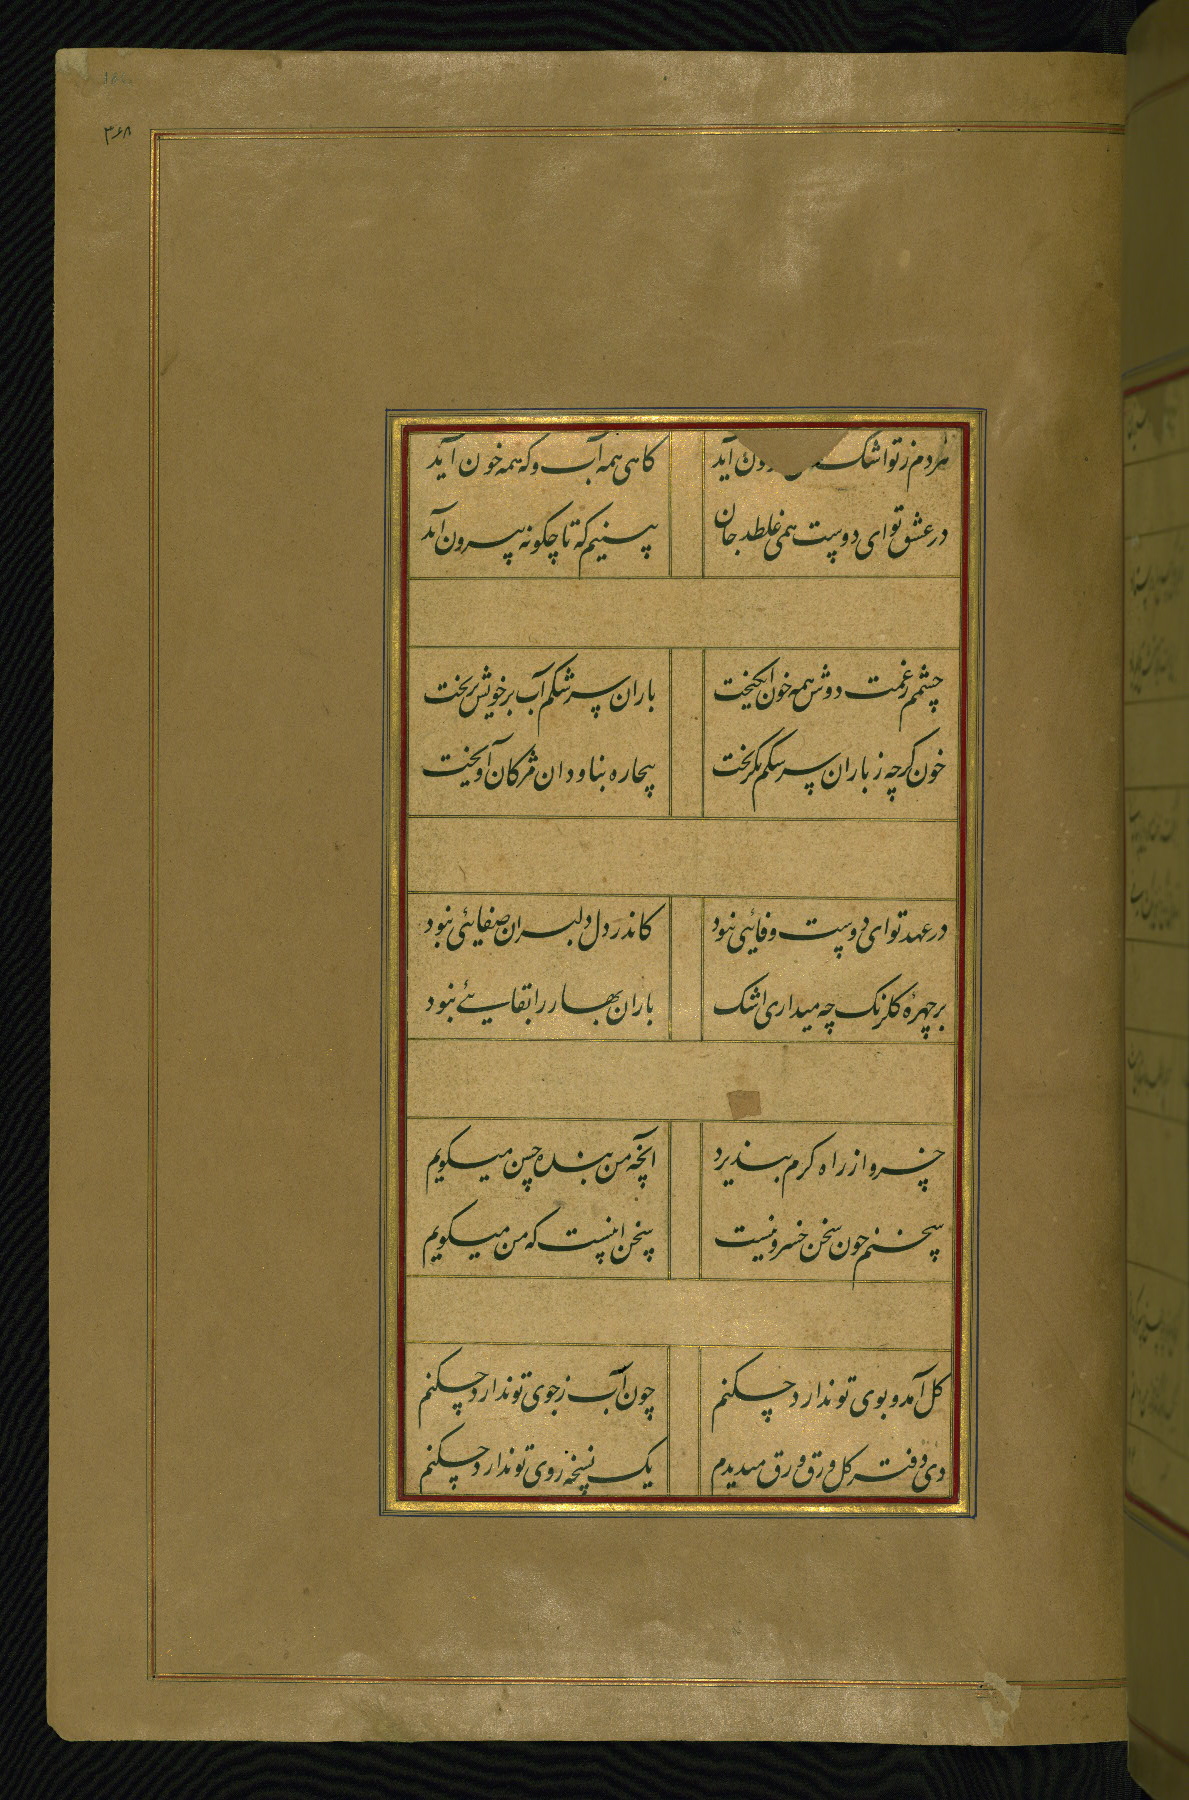 ۳۶۸
هردم ز تو اشک ون آید
کاهی همه آب و که همه خون آید
در عشق تو ای دوست همی غلطد جان
بینیم که تا چکونه بیرون آید
چشمم ز غمت دوش همه خون انکیخت
باران سرشکم آب بر خویش بریخت
خون کرچه ز باران سرشکم بکریخت
بیچاره بناودان مژکان آویخت
در عهد تو ای دوست وفائی نبود
کاندر دل دلبران صفائی نبود
بر چهرهٔ کلرنک چه میداری اشک
باران بهار را بقائی نبود
خسرو از راه کرم بپذیرد
انچه من بنده حسن میکویم
سخنم چون سخن خسرو نیست
سخن اینست که من میکویم
کل آمد و بوی تو ندارد چکنم
چون آب ز جوی تو ندارد چکنم
دی دفتر کل ورق ورق میدیدم
یک نسخه روی تو ندارد چکنم